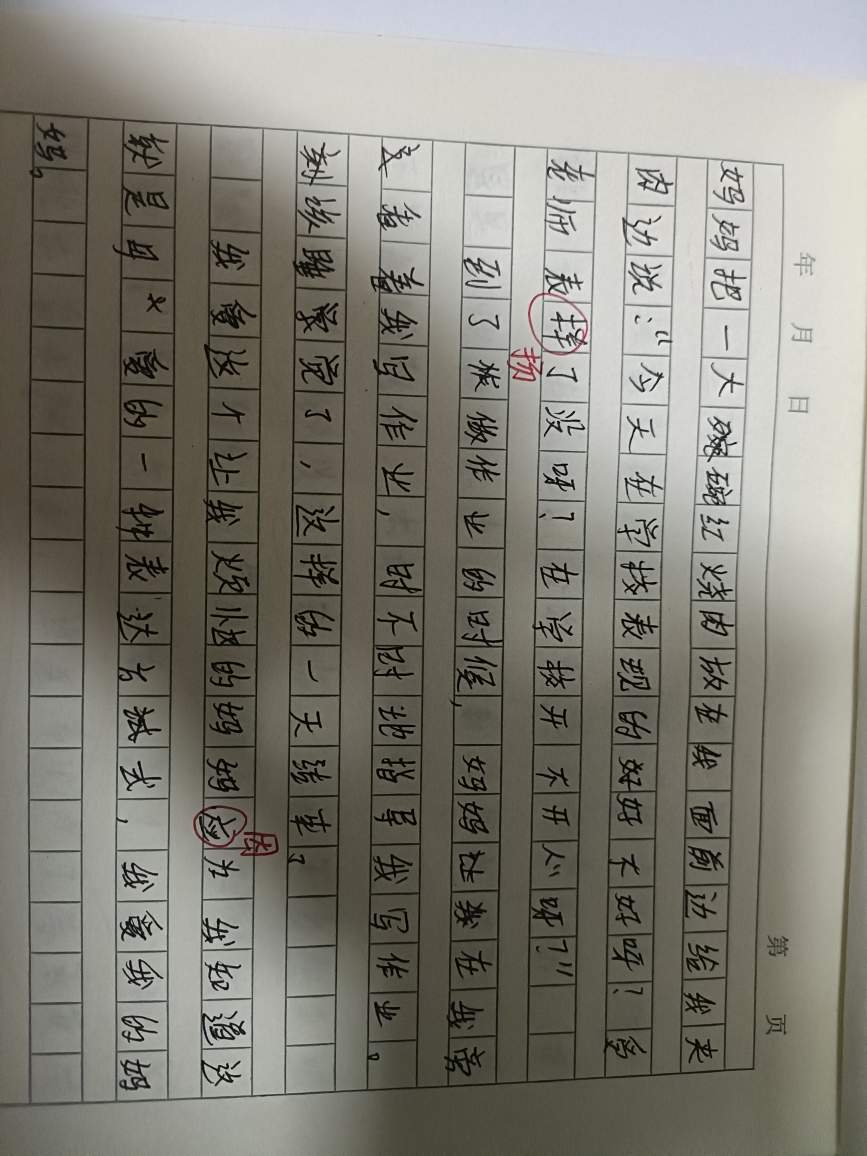 年 月 日 第 页
妈妈把一大碗红烧肉放在我面前边给我夹
肉边说:“今天在学校表现的好好不好呀?
老师表择了没呀?在学校开不开心呀?”
扬
到了做作业的时候,妈妈在我旁
边看着我写作业,时不时地指导我写作业。
到该睡觉了,这样的一天结束。
我爱这个让我烦恼的妈妈应为我知道这
因
就是母爱的一种表达方式,我爱我的妈
妈。